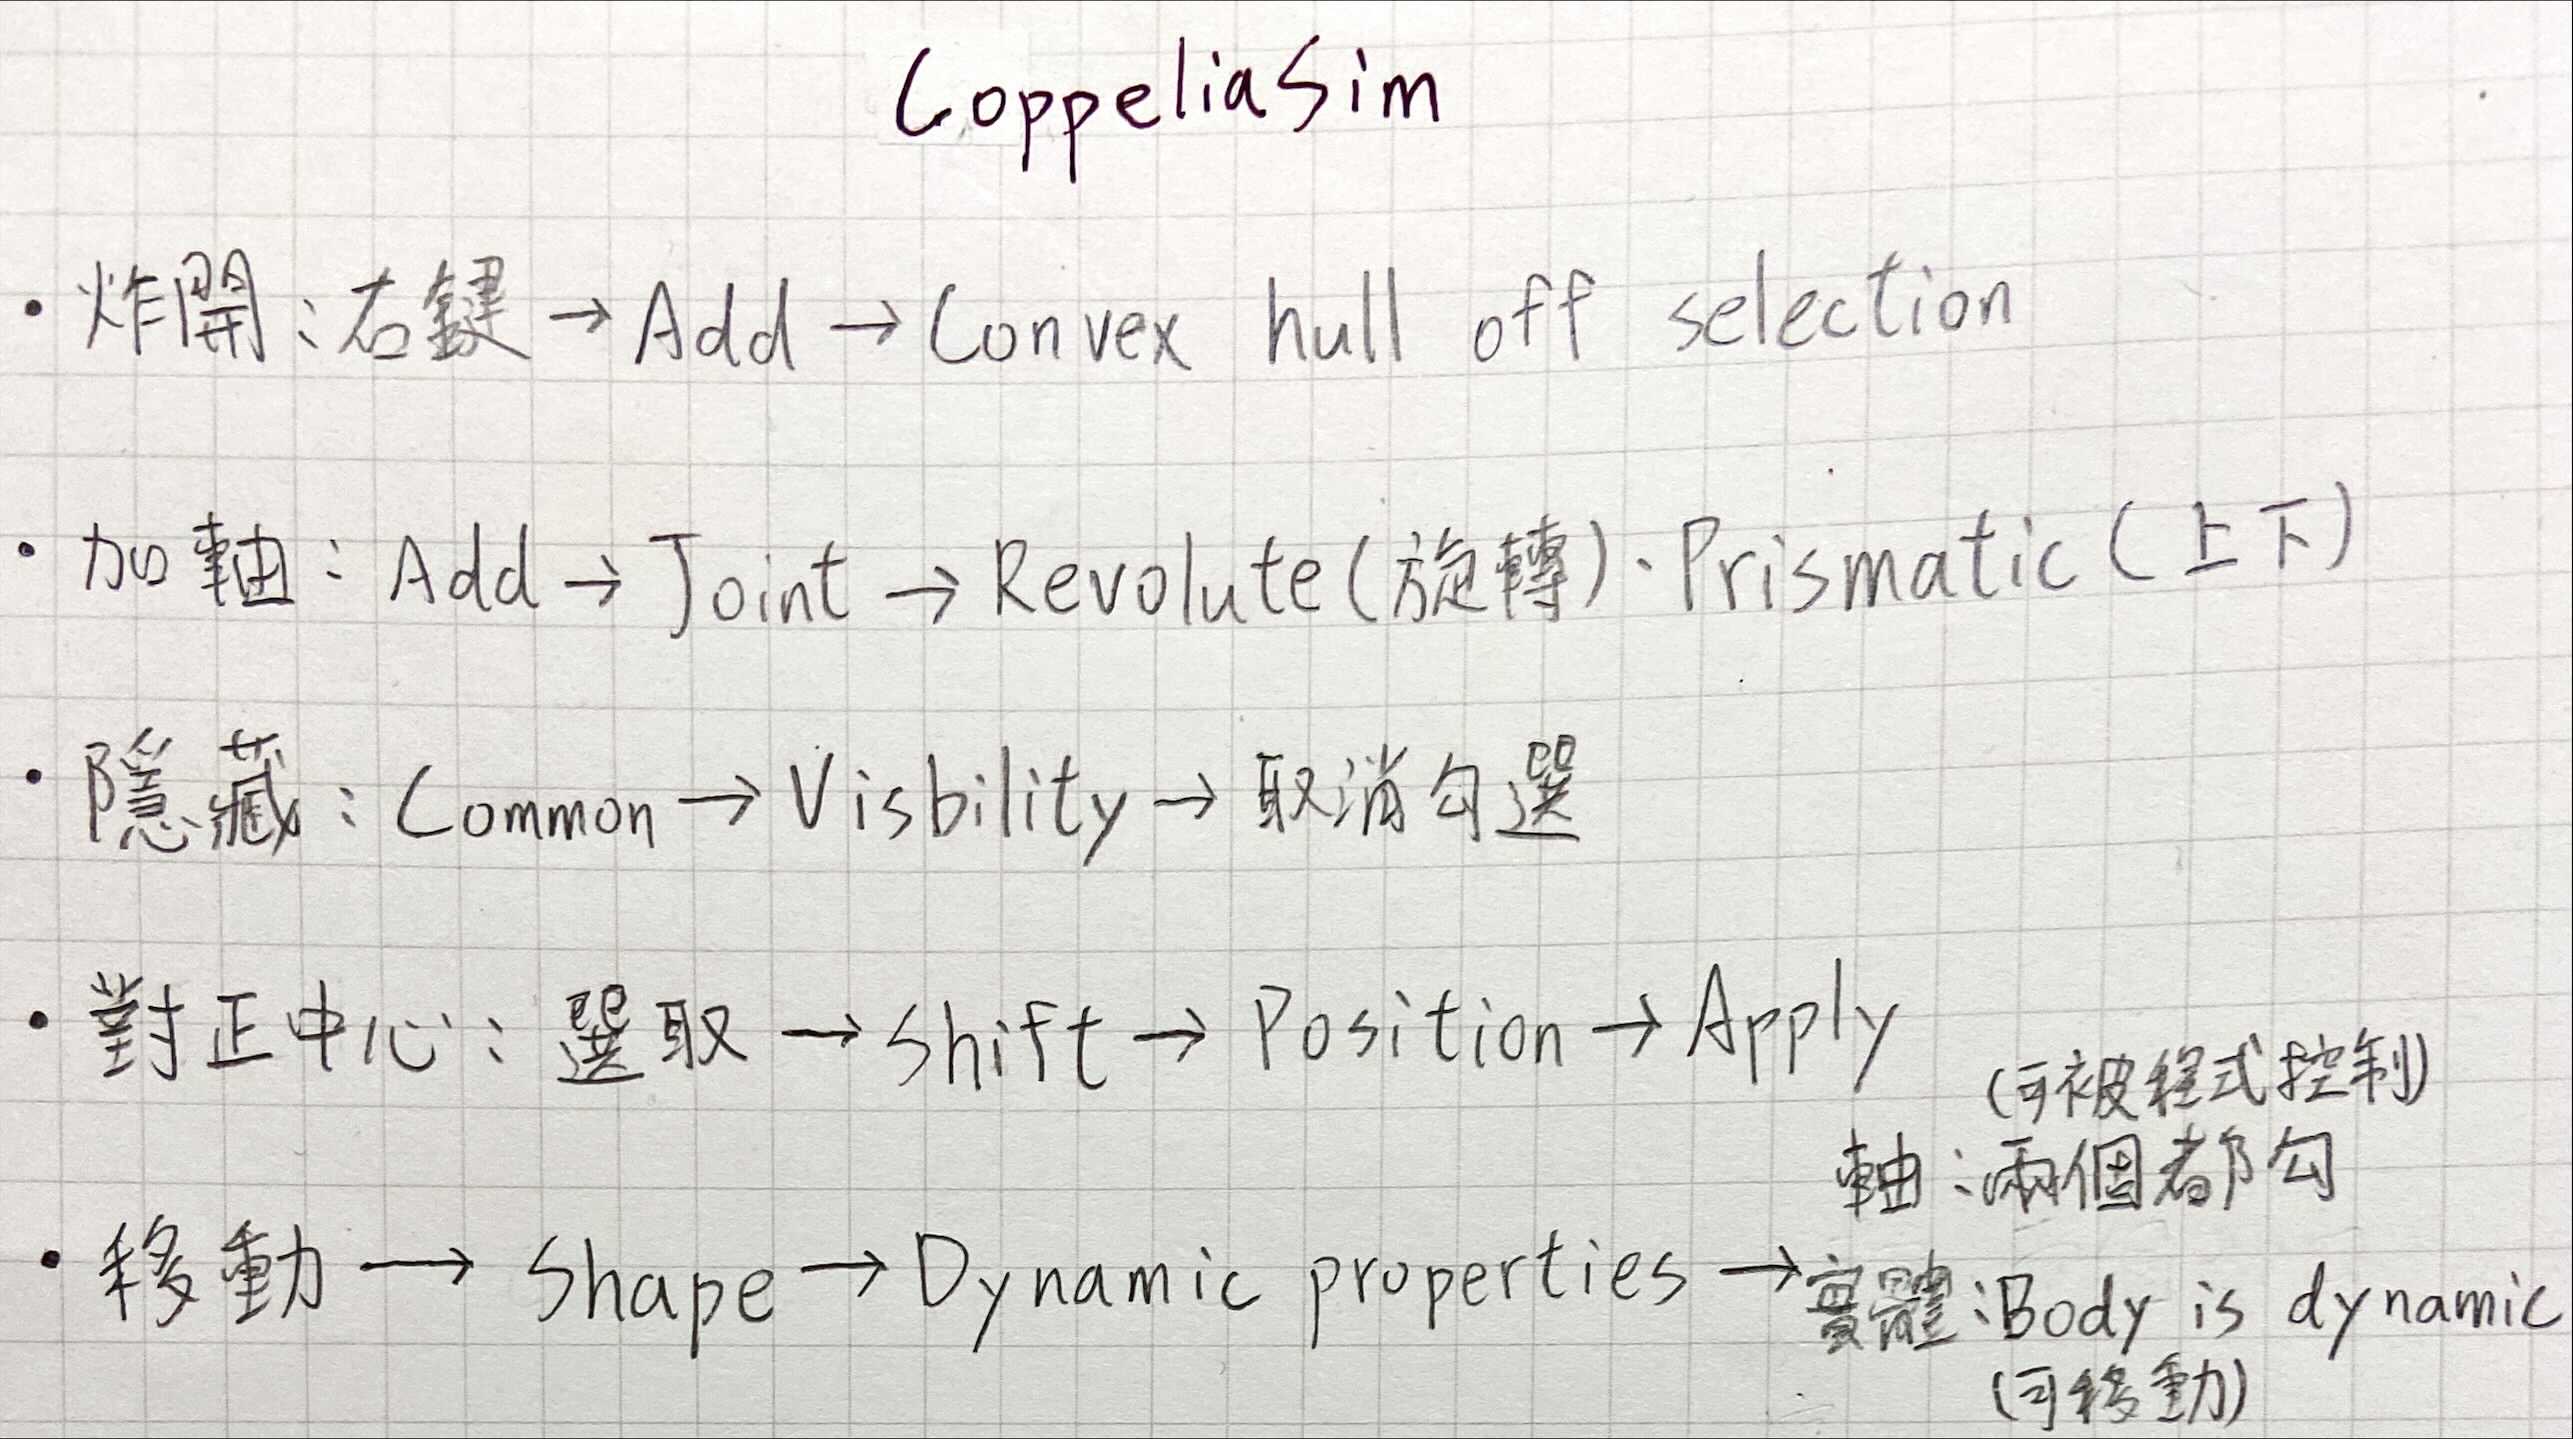 CoppeliaSim
• 炸開：右鍵→Add→Convex hull off selection
• 加軸：Add→Joint→Revolute(旋轉)、Prismatic(上下)
• 隱藏：Common→Visbility→取消勾選
• 對正中心：選取→Shift→Position→Apply
(可被程式控制)
軸：兩個都勾
• 移動→Shape→Dynamic properties→實體：Body is dynamic
(可移動)